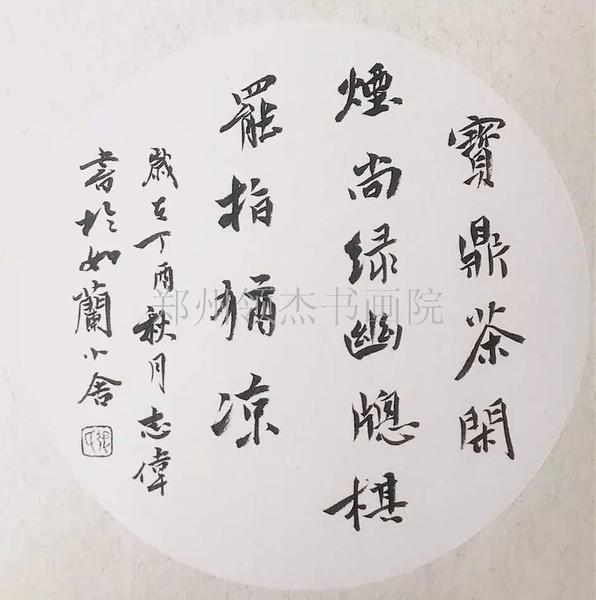 寶鼎茶閑
煙尚绿幽牕棋
罷指猶凉
歲在丁酉秋月志偉
書於如蘭小舍
郑州领杰书画院